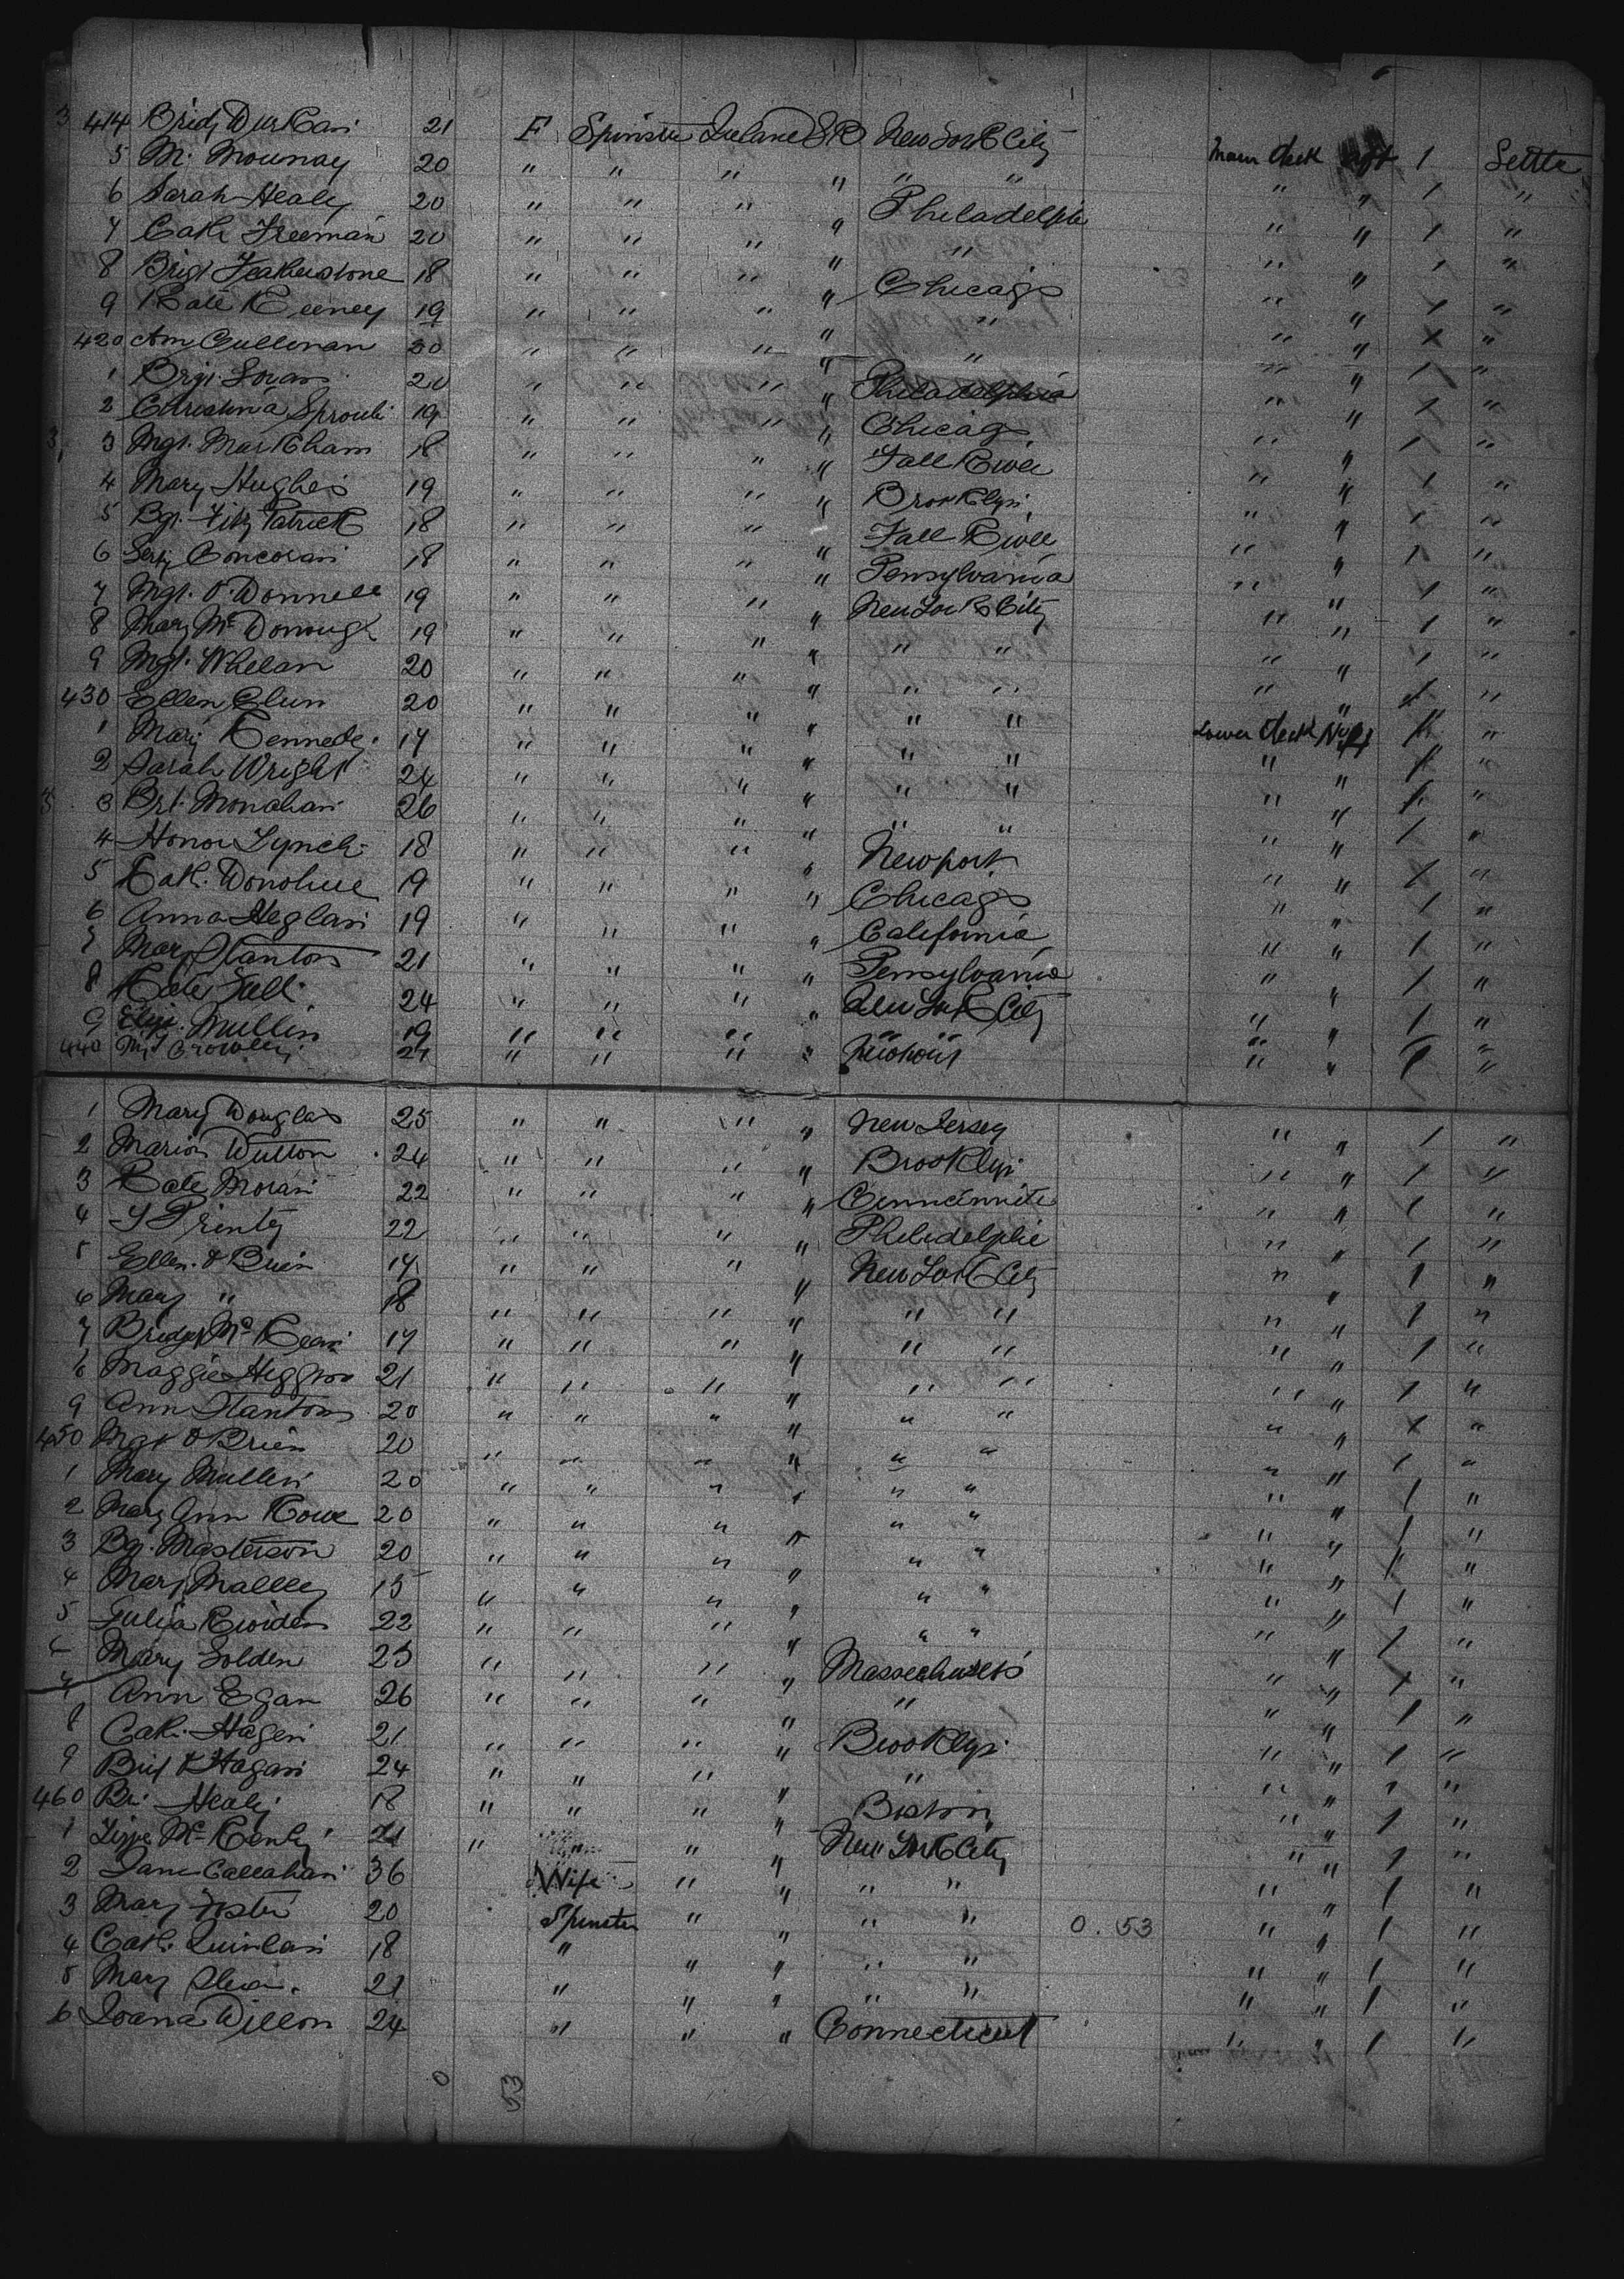 414 Bridy Durkan 21 F Spinster Ireland S.B New York City Main deck aft 1 Settle
5 M. Mounay 20 " " " " " " " " 1 "
6 Sarah Healey 20 " " " " Philadelphia " " 1 "
7 Cath Freeman 20 " " " " " " " 1 "
8 Brigt Featherstone 18 " " " " Chicago " " 1 "
9 Kate Keeney 19 " " " " " " " 1 "
420 Ann Cullinan 20 " " " " " " " 1 "
1 Brigt 20 " " " " Philadelphia " " 1 "
2 Christina Sproule 19 " " " " Chicago " " 1 "
3 Mgt. Markham 18 " " " " Fall River " " 1 "
4 Mary Hughes 19 " " " " Brooklyn " " 1 "
5 Bgt. Fitz Patrick 18 " " " " Fall River " " 1 "
6 Concoran 18 " " " " Pensylvania " " 1 "
7 Mgt. O'Donnell 19 " " " " New York City " " 1 "
8 Mary McDonough 19 " " " " " " " " 1 "
9 Mgt. Whelan 20 " " " " " " " " 1 "
430 Ellen Clun 20 " " " " " " " " 1 "
1 Mary Kennedy 17 " " " " " " Lower deck 1 "
2 Sarah Wright 24 " " " " " " " " 1 "
3 Brt. Monahan 26 " " " " " " " " 1 "
4 Honor Lynch 18 " " " " Newport " " 1 "
5 Cath. Donohue 19 " " " " Chicago " " 1 "
6 Anna Heglan 19 " " " " California " " 1 "
7 Mary Stanton 21 " " " " Pensylvania " " 1 "
8 Kate 24 " " " " New York City " " 1 "
9 Eliz. Mullin 19 " " " " " " 1 "
440 Mgt Crowley 21 " " " " Newport " " 1 "
1 Mary Douglas 25 " " " " New Jersey " " 1 "
2 Marion Dutton 24 " " " " Brooklyn " " 1 "
3 Kate Moran 22 " " " " Cenncinnite " " 1 "
4 Printy 22 " " " " Philidelphie " " 1 "
5 Ellen O'Brien 17 " " " " New York City " " 1 "
6 Mary " 18 " " " " " " " " 1 "
7 Bridget McKeon 17 " " " " " " " " 1 "
8 Maggie Higgins 21 " " " " " " " " 1 "
9 Ann Stanton 20 " " " " " " " " 1 "
450 Mgt O'Brien 20 " " " " " " " " 1 "
1 Mary Mullin 20 " " " " " " " " 1 "
2 Mary Ann Rowe 20 " " " " " " " " 1 "
3 Bg. Masterson 20 " " " " " " " " 1 "
4 Mary Malley 15 " " " " " " " " 1 "
5 Julia Riorden 22 " " " " " " " " 1 "
6 Mary Golden 23 " " " " Massechusets " " 1 "
7 Ann Egan 26 " " " " " " " 1 "
8 Cath. Hagen 21 " " " " Brooklyn " " 1 "
9 Brit O'Hagan 24 " " " " " " " 1 "
460 Br. Healy 18 " " " " Boston " " 1 "
1 Lizzie McKenly 21 " " " " New York City " " 1 "
2 Jane Callahan 36 Wife " " " " " " 1 "
3 Mary Foster 20 Spinster " " " " 0. 53 " " 1 "
4 Cath. Quinlan 18 " " " " " " " 1 "
5 Mary 21 " " " " " " " 1 "
6 Joana Dillon 24 " " " Connecticut " " 1 "
0 53